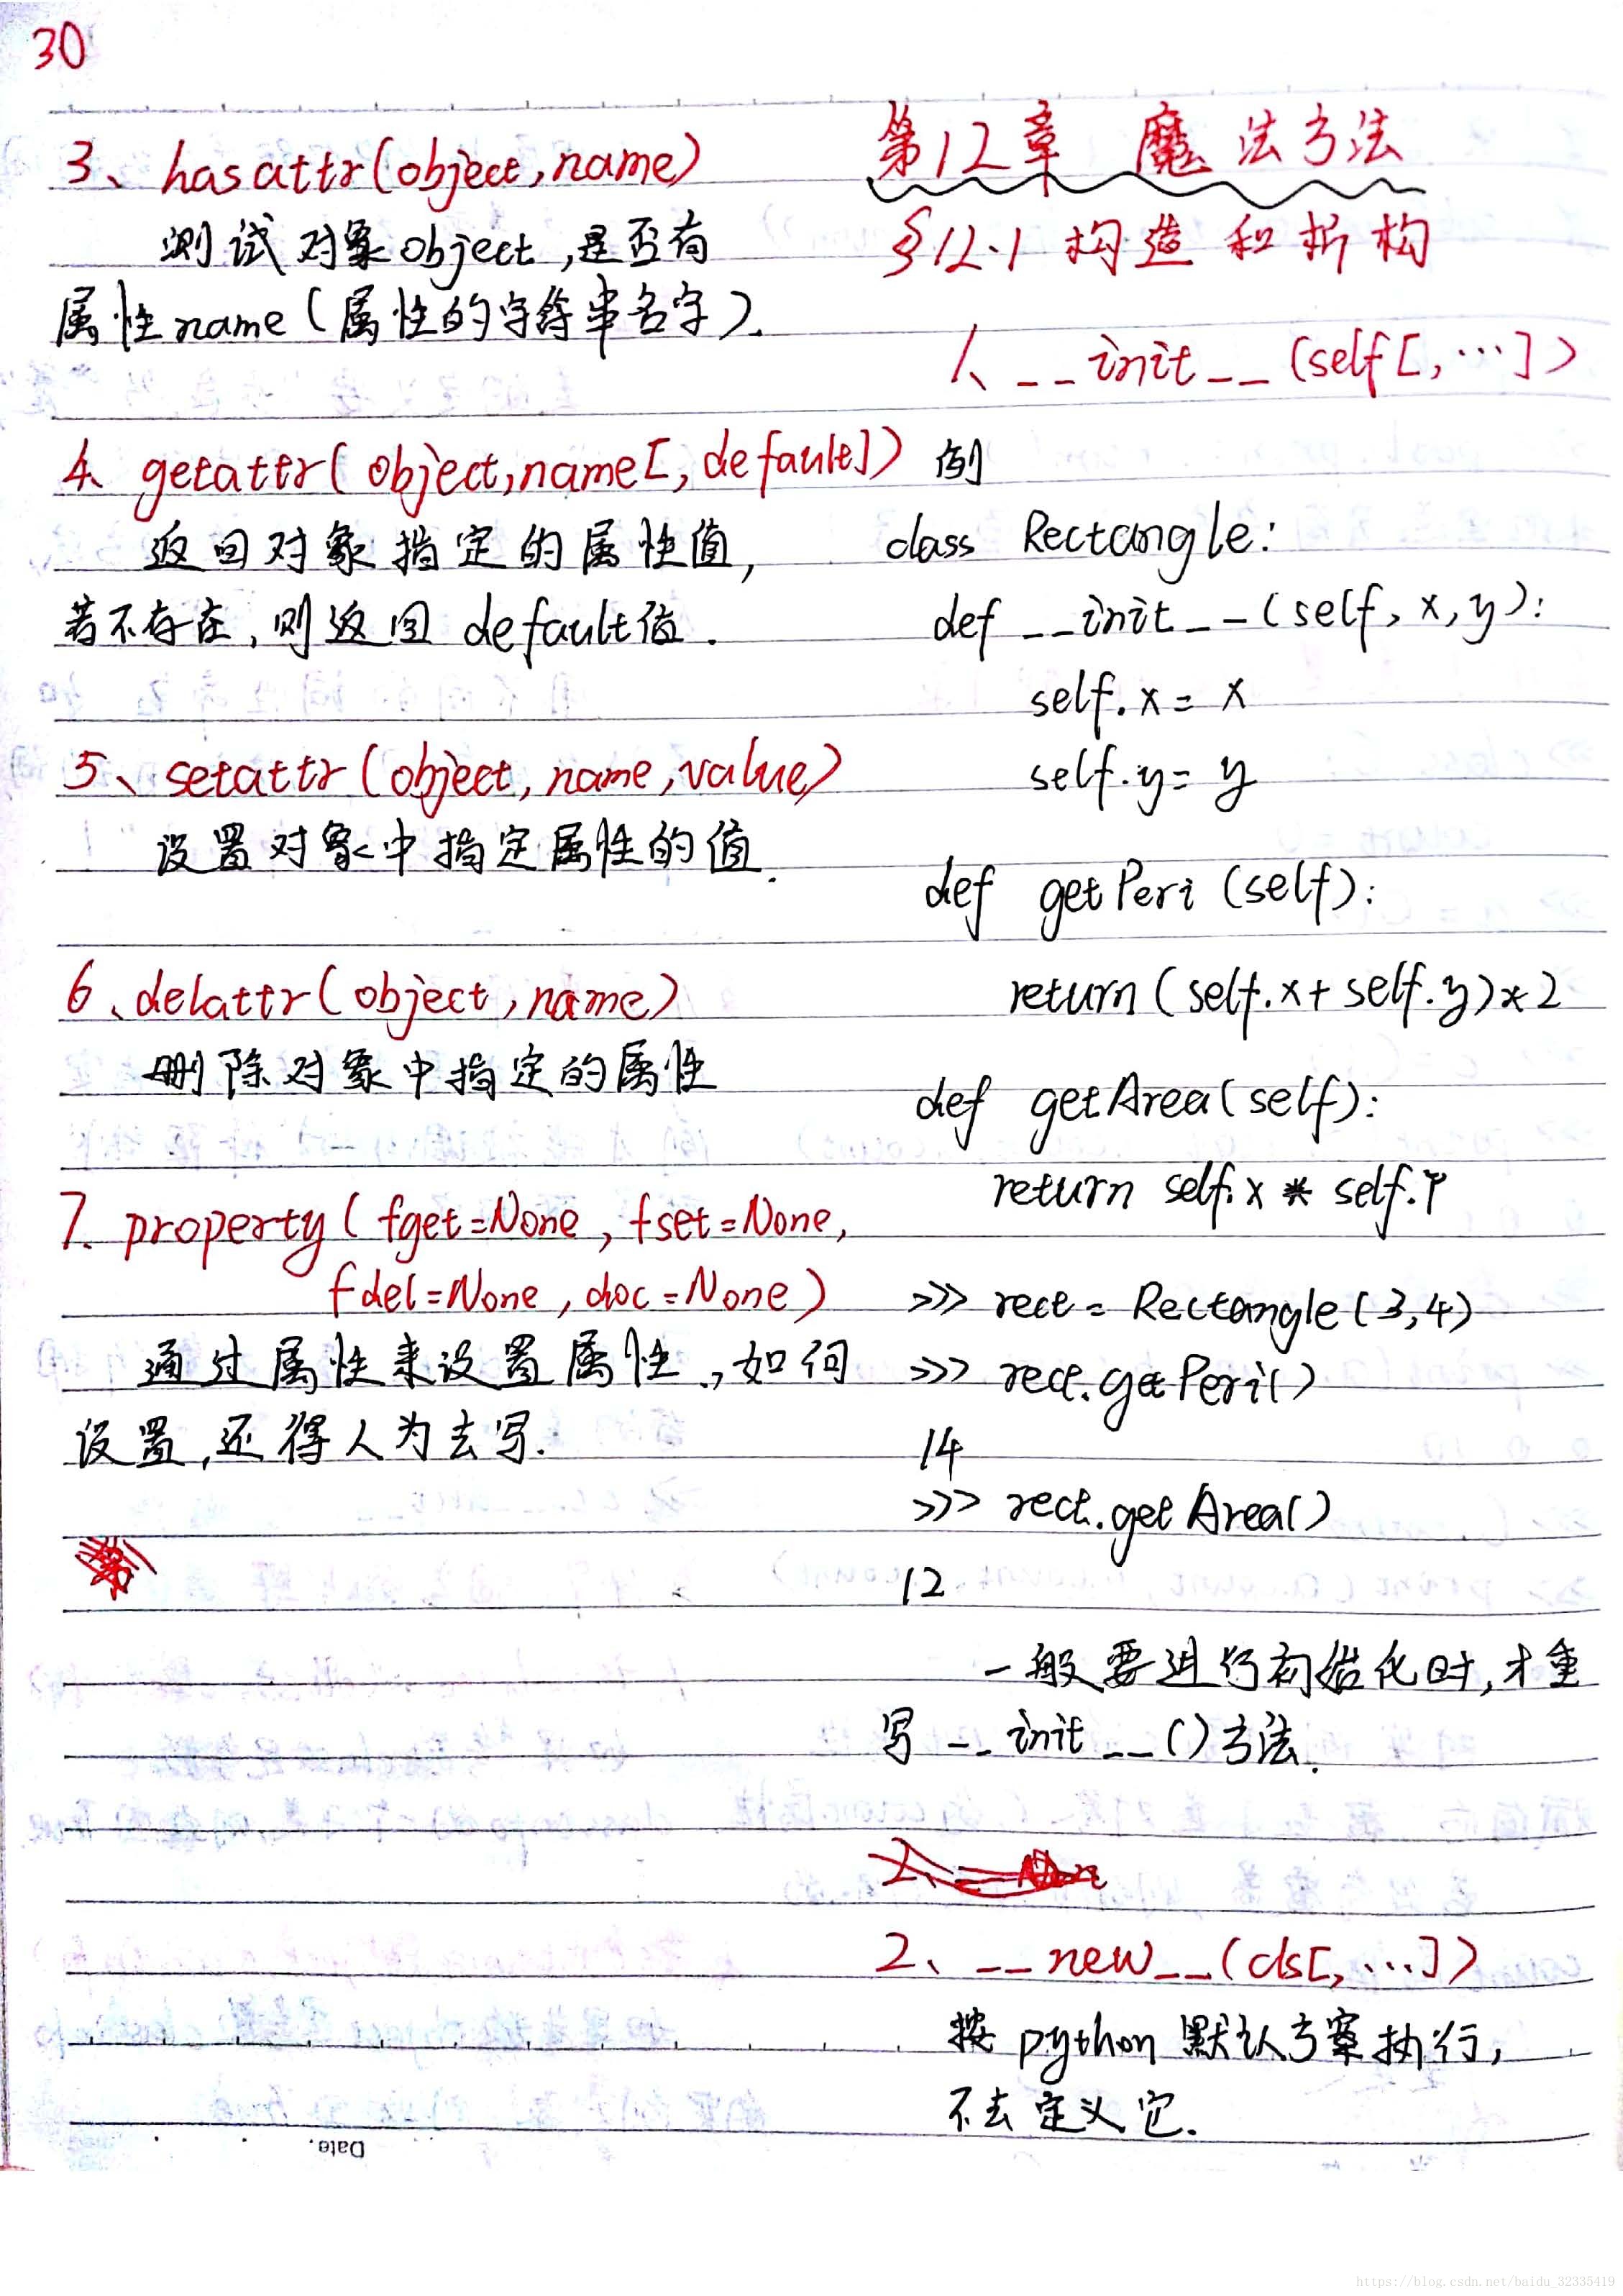 30
3、hasattr(object,name)
测试对象object,是否有
属性name(属性的字符串名字).
4、getattr(object,name[,default])
返回对象指定的属性值,
若不存在,则返回default值.
5、setattr(object,name,value)
设置对象中指定属性的值.
6、delattr(object,name)
删除对象中指定的属性
7.property(fget=None,fset=None,
fdel=None,doc=None)
通过属性来设置属性,如何
设置,还得人为去写.
第12章 魔法方法
§12.1 构造和析构
1、__init__(self[,…])
例
class Rectangle:
def __init__(self,x,y):
self.x = x
self.y = y
def getPeri(self):
return(self.x+self.y)*2
def getArea(self):
return self.x * self.y
>>> rect = Rectangle(3,4)
>>> rect.getPeri()
14
>>> rect.getArea()
12
一般要进行初始化时,才重
写__init__()方法.
2、__new__(cls[,…])
按python默认方案执行,
不去定义它.
Date.
https://blog.csdn.net/baidu_32335419